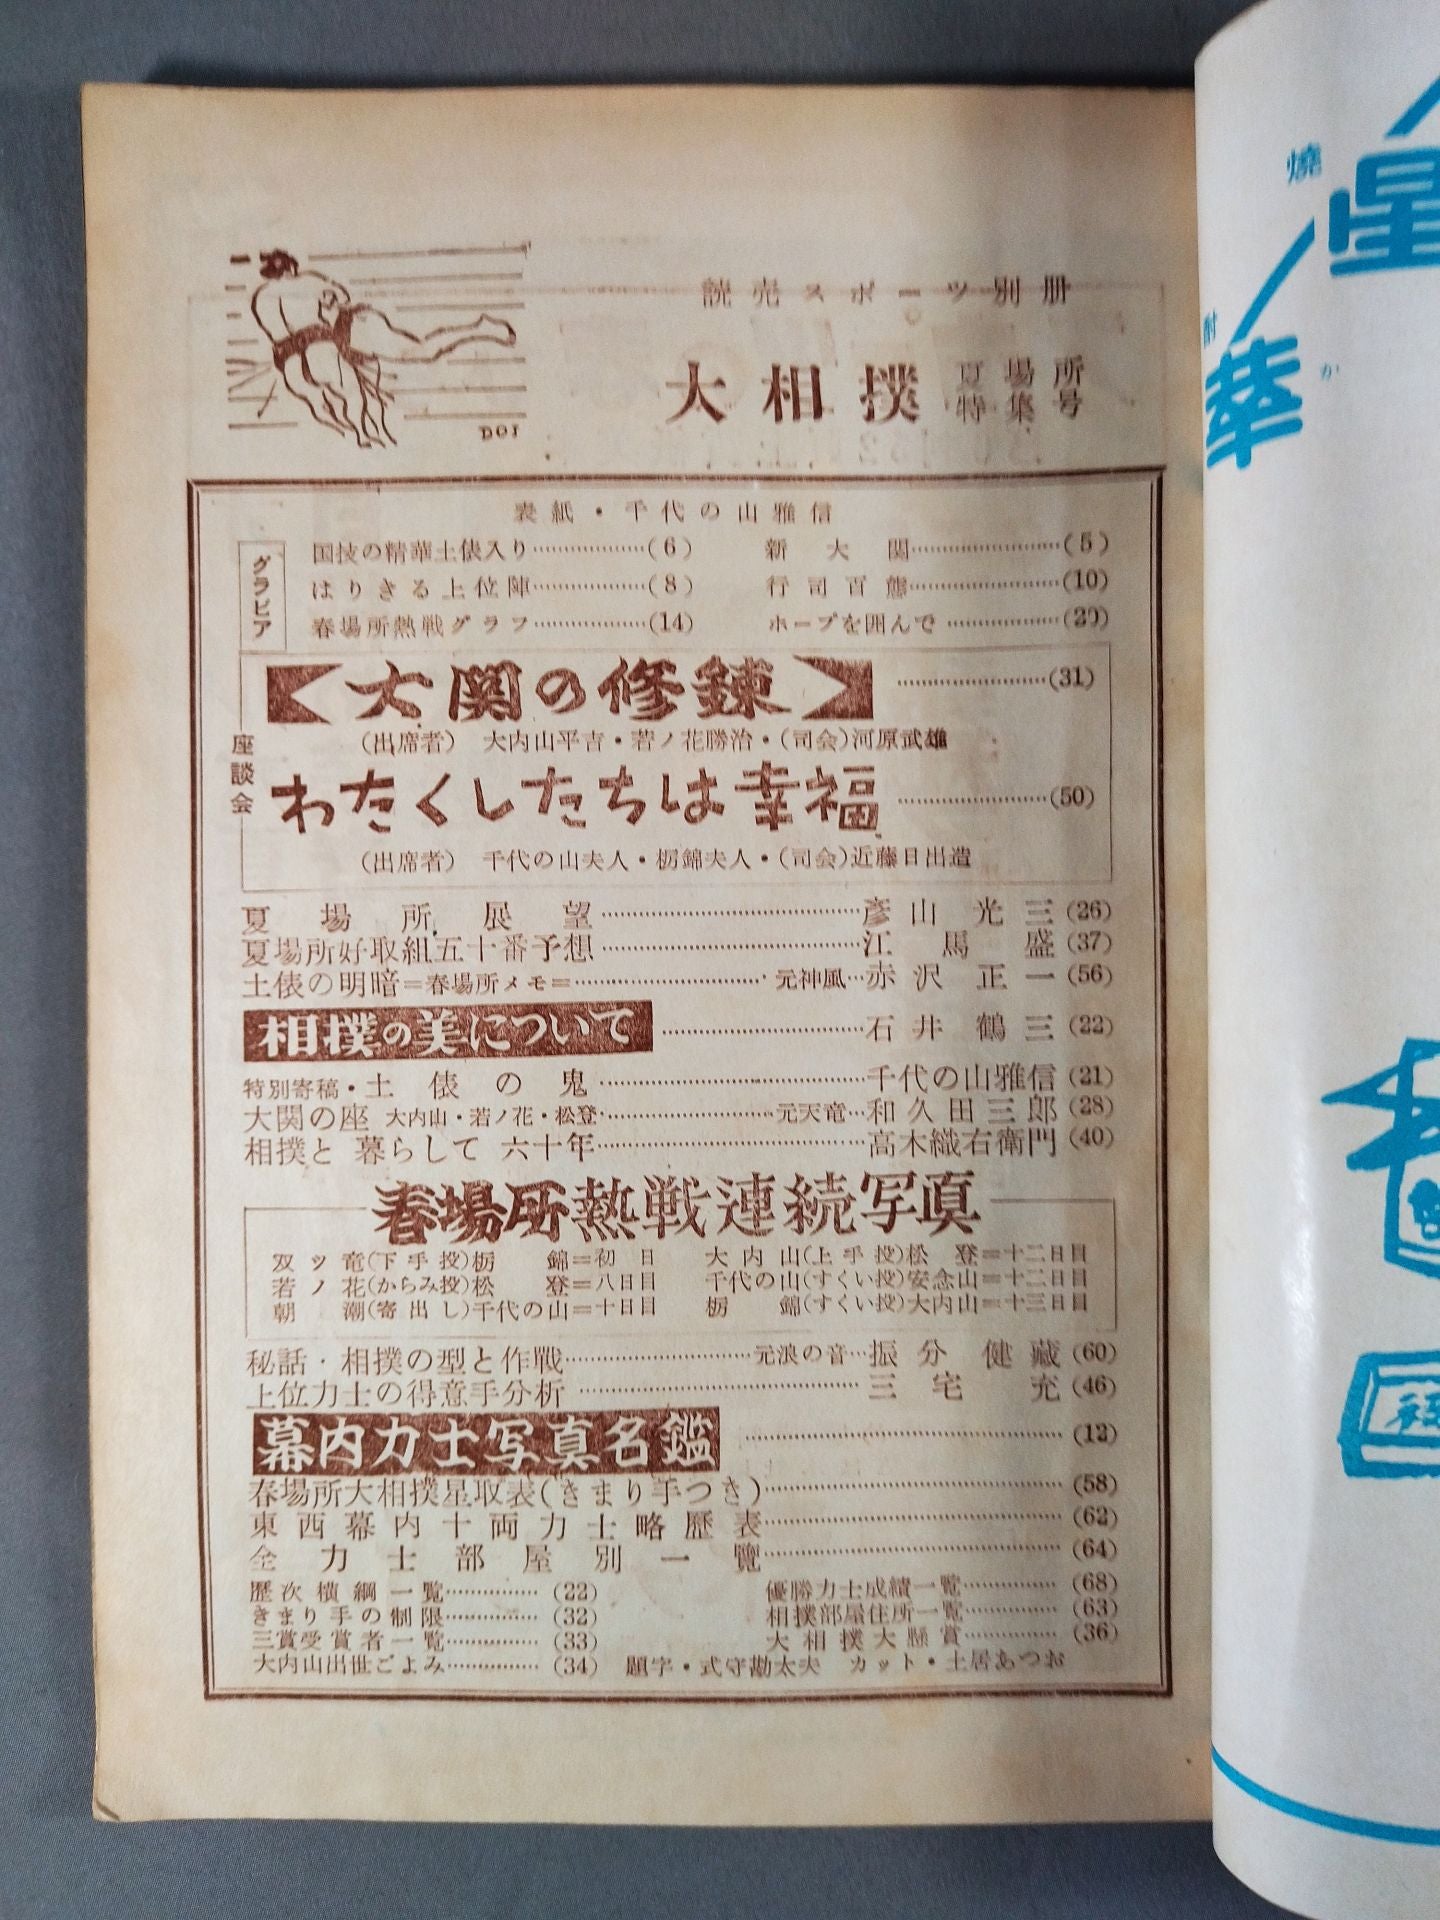 読売スポーツ別冊
大相撲 夏場所特集号
DOI
表紙・千代の山雅信
グラビア
国技の精華土俵入り………………(6)
新大関……………………(5)
はりきる上位陣………………(8)
行司百態……………………(10)
春場所熱戦グラフ………………(14)
ホープを囲んで………………(29)
座談会
大関の修錬……………………(31)
(出席者) 大内山平吉・若ノ花勝治・(司会)河原武雄
わたくしたちは幸福……………………(50)
(出席者) 千代の山夫人・栃錦夫人・(司会)近藤日出造
夏場所展望……………………彦山光三(26)
夏場所好取組五十番予想……………………江馬盛(37)
土俵の明暗=春場所メモ=……………………元神風…赤沢正一(56)
相撲の美について……………………石井鶴三(22)
特別寄稿・土俵の鬼……………………千代の山雅信(21)
大関の座 大内山・若ノ花・松登……………………元天竜…和久田三郎(28)
相撲と暮らして六十年……………………高木織右衛門(40)
春場所熱戦連続写真
双ツ竜(下手投)栃錦=初日 大内山(上手投)松登=十二日目
若ノ花(からみ投)松登=八日目 千代の山(すくい投)安念山=十二日目
朝潮(寄出し)千代の山=十日目 栃錦(すくい投)大内山=十三日目
秘話・相撲の型と作戦……………………元浪の音…振分健蔵(60)
上位力士の得意手分析……………………三宅充(46)
幕内力士写真名鑑……………………(12)
春場所大相撲星取表(きまり手つき)……………………(58)
東西幕内十両力士略歴表……………………(62)
全力士部屋別一覧……………………(64)
歴次横綱一覧……………(22)
優勝力士成績一覧……………(68)
きまり手の制限……………(32)
相撲部屋住所一覧……………(63)
三賞受賞者一覧……………(33)
大相撲大懸賞……………(36)
大内山出世ごよみ……………(34) 題字・式守勘太夫 カット・土居あつお
焼
星
酎
華
か